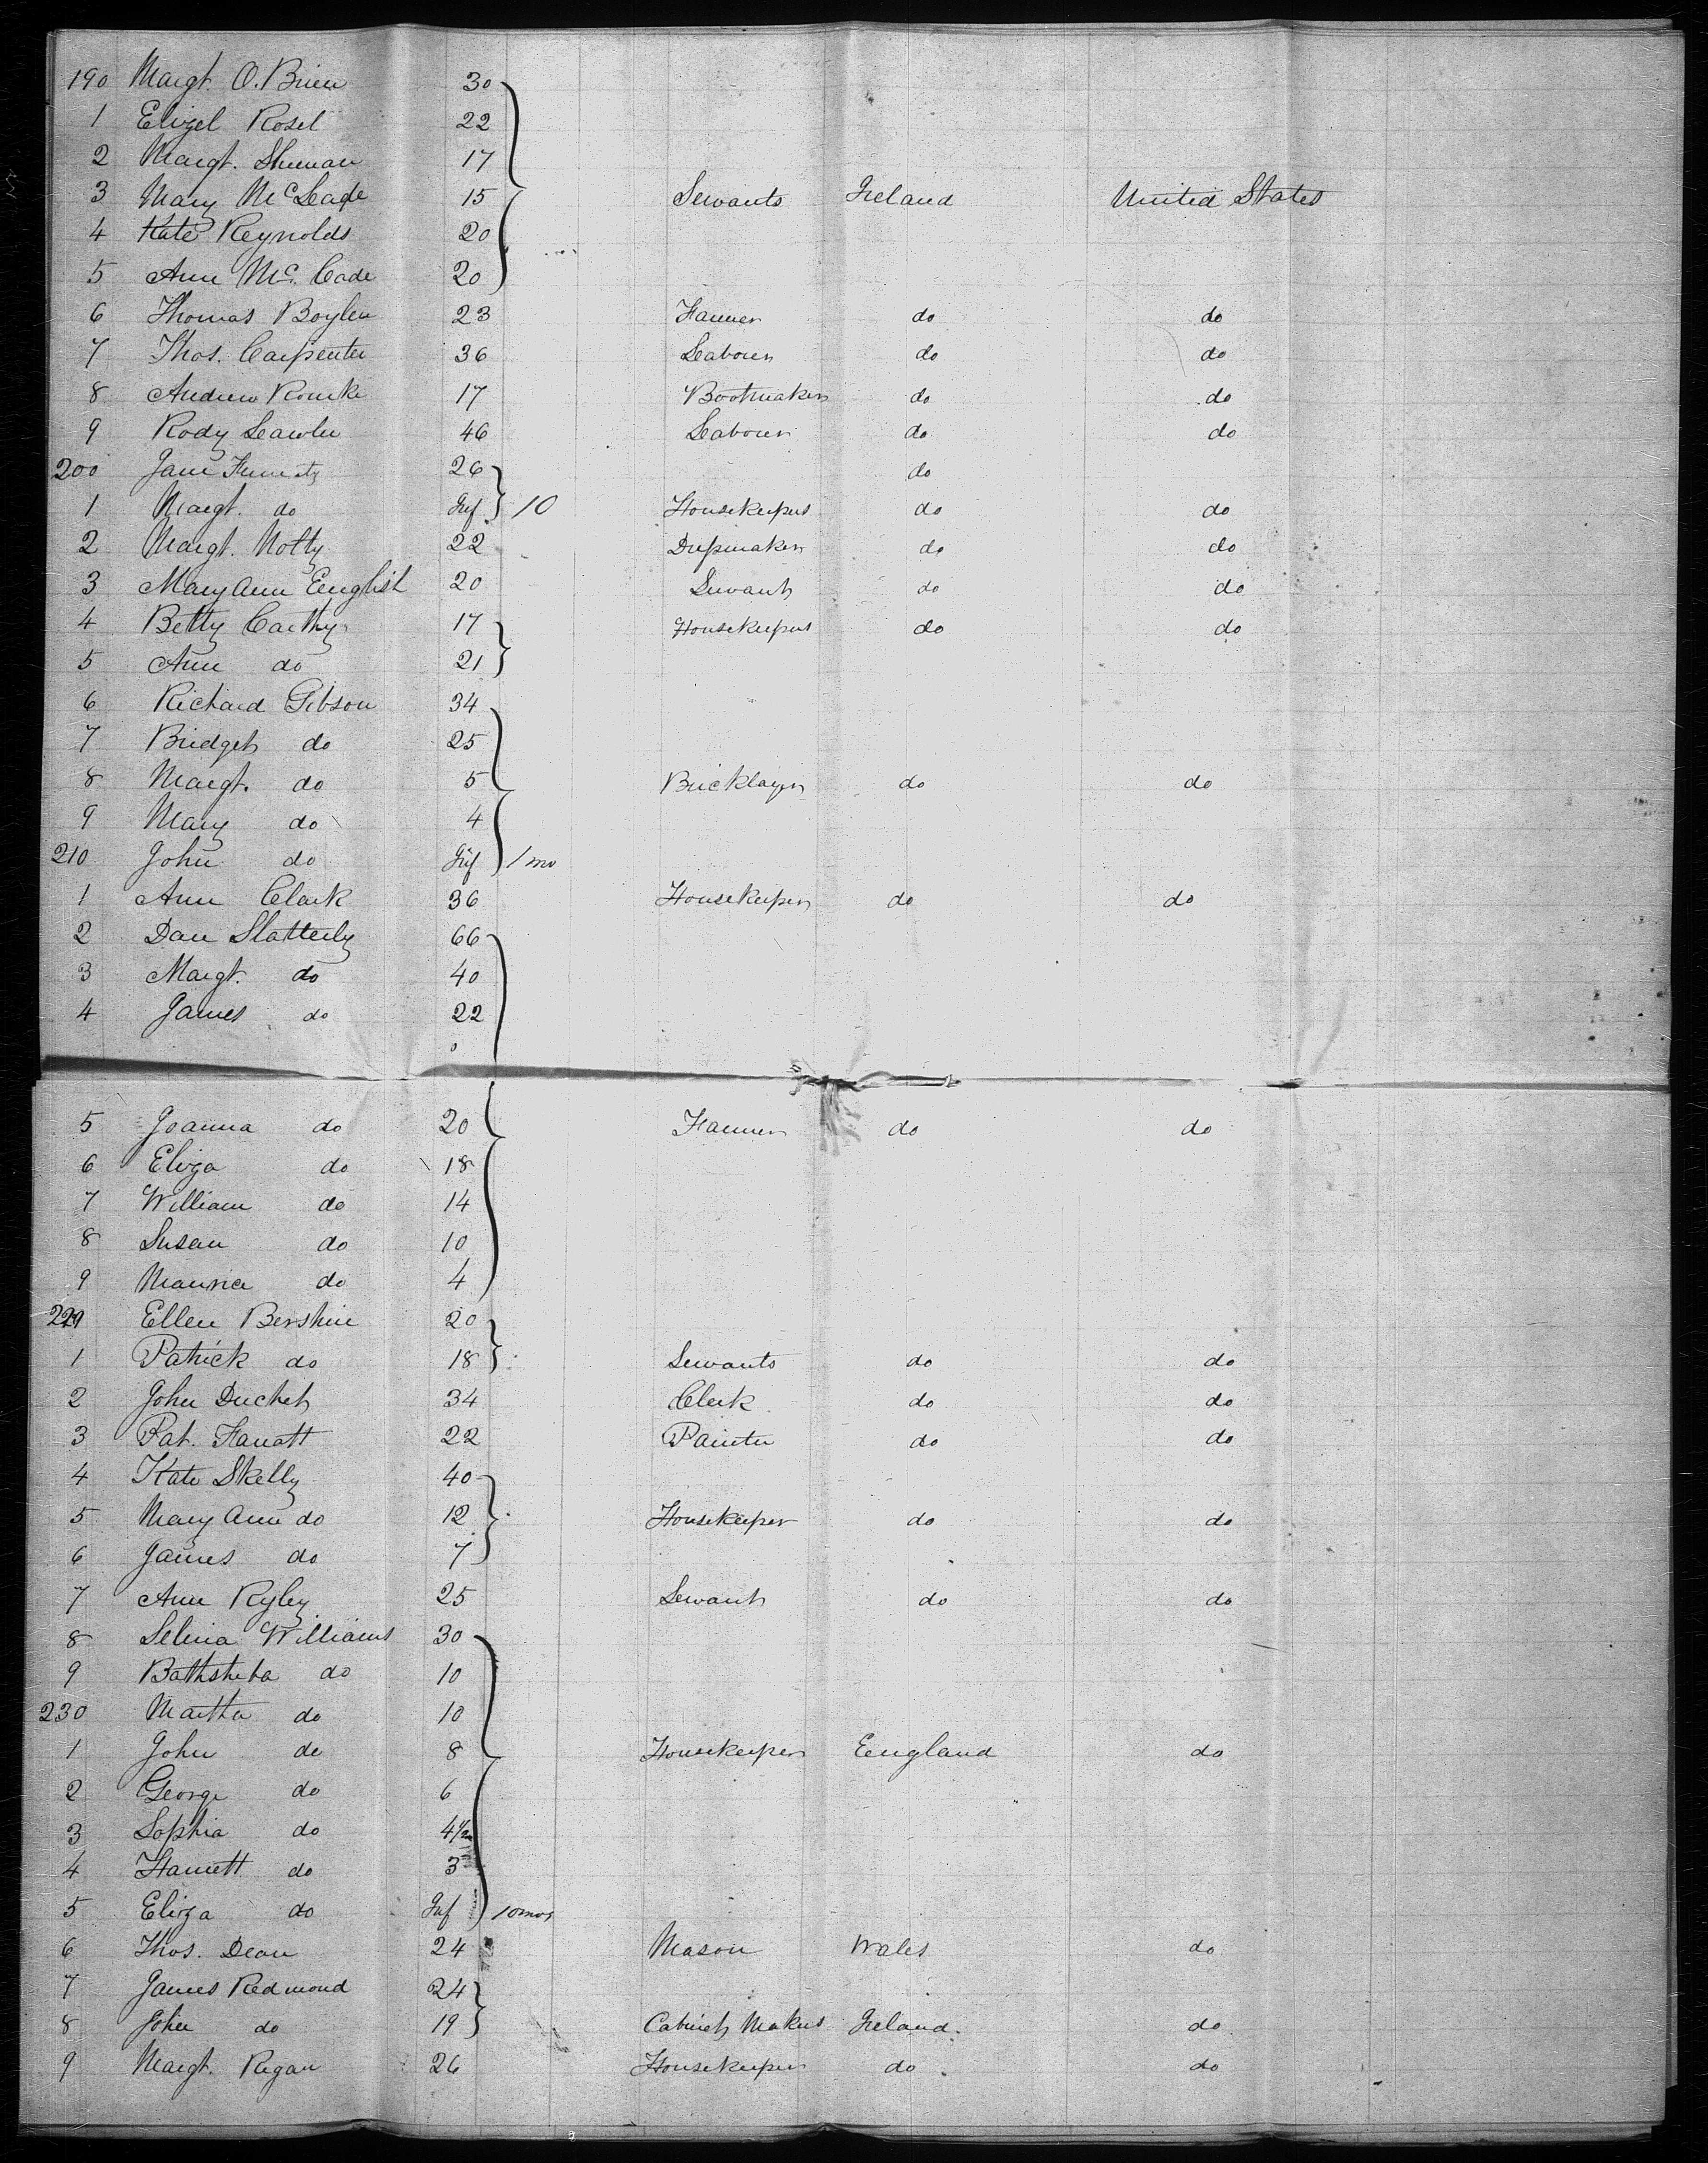 190 Margt. O.Brien 30
1 Elizel Rosel 22
2 Margt. 17
3 Mary McLeade 15 Servants Ireland United States
4 Kate Reynolds 20
5 Ann Mc. Cade 20
6 Thomas Boylen 23 Farmer do do
7 Thos. Carpenter 36 Labourer do do
8 Andrew Rourke 17 Bootmaker do do
9 Rody Lawler 46 Labourer do do
200 Jane 26 do
1 Margt. do Inf 10 Housekeepers do do
2 Margt. Notty 22 Dressmaker do do
3 Mary Ann English 20 Servant do do
4 Betty Carthy 17 Housekeepers do do
5 Ann do 21
6 Richard Gibson 34
7 Bridget do 25
8 Margt. do 5 Bricklayer do do
9 Mary do 4
210 John do Inf 1 mo
1 Ann Clark 36 Housekeeper do do
2 Dan Slatterly 66
3 Margt. do 40
4 James do 22
5 Joanna do 20 Farmer do do
6 Eliza do 18
7 William do 14
8 Susan do 10
9 Maurice do 4
Ellen Bershin 20
1 Patrick do 18 Servants do do
2 John Duchet 34 Clerk do do
3 Pat. Farratt 22 Painter do do
4 Kate Skelly 40
5 Mary Ann do 12 Housekeeper do do
6 James do 7
7 Ann Ryley 25 Servant do do
8 Selina Williams 30
9 Bathsheba do 10
230 Martha do 10
1 John do 8 Housekeeper England do
2 George do 6
3 Sophia do 4½
4 Harriett do 3
5 Eliza do Inf 10 mos
6 Thos. Dean 24 Mason Wales do
7 James Redmond 24
8 John do 19 Cabinet Makers Ireland. do
9 Margt. Regan 26 Housekeeper do do